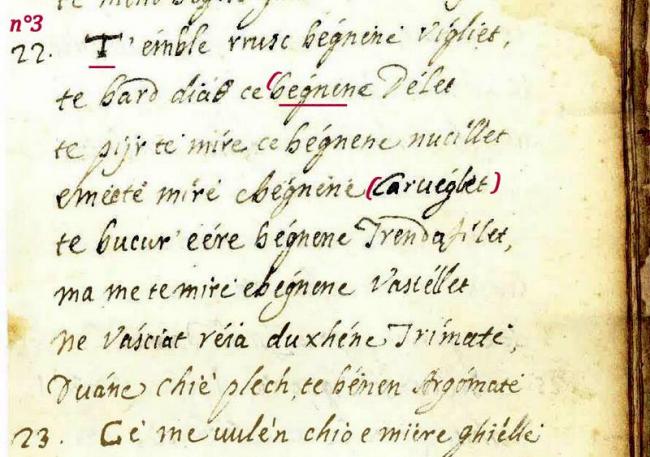 n°3
22. T' émble rrusc bégnene Vigliet,
te bard diáδ ce (bégnene Délet
te pijr te mire ce bégnene nucillet
emeetë mirë cbégnene (Carueglet)
te bucur' eére bégnene Trendafilet,
ma me te mirë ebégnene Vastéllet
ne Vásciat réia duxhéne Trimatë,
Duáne Chië plech, te bénen Argómatë
23. Cë me uulén chio e mière ghiélle